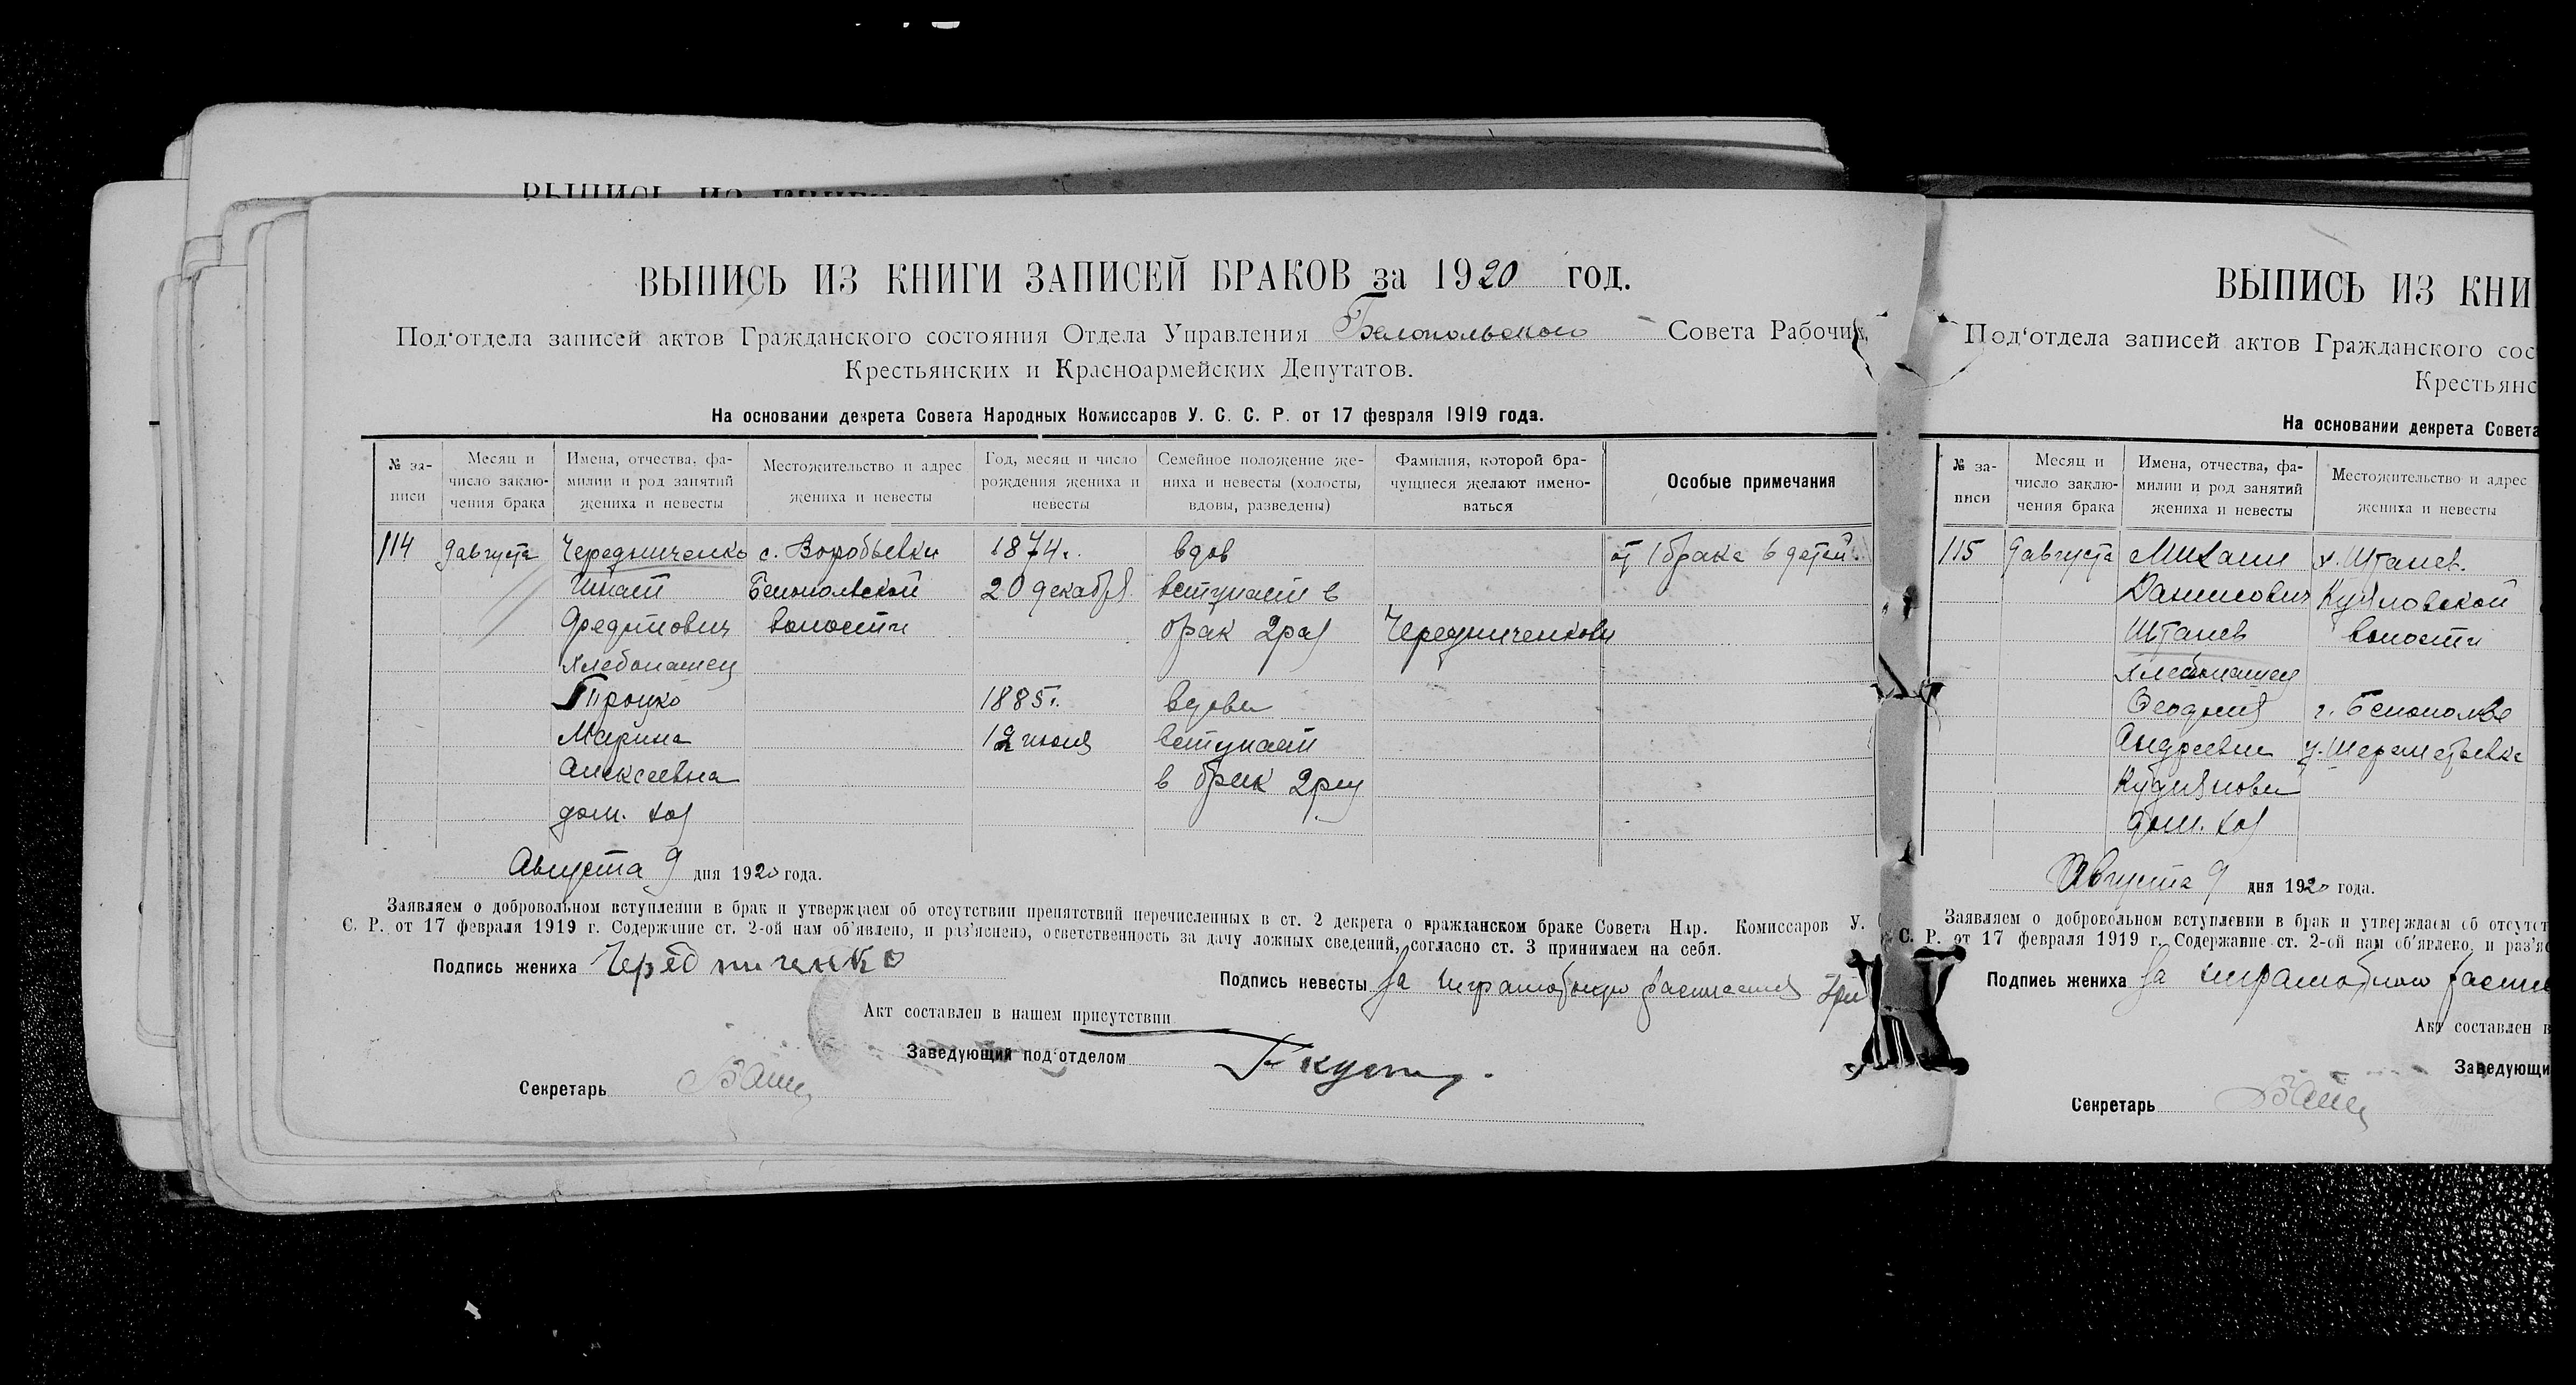 ВЫПИСЬ ИЗ КНИГИ ЗАПИСЕЙ БРАКОВ за 1920 год.
Под'отдела записей актов Гражданского состояния Отдела Управления Белопольского Совета Рабочих,
Крестьянских и Красноармейских Депутатов.
На основании декрета Совета Народных Комиссаров У. С. С. Р. от 17 февраля 1919 года.
№ за-
писи
Месяц и
число заклю-
чения брака
Имена, отчества, фа-
милии и род занятий
жениха и невесты
Местожительство и адрес
жениха и невесты
Год, месяц и число
рождения жениха и
невесты
Семейное положение же-
ниха и невесты (холосты,
вдовы, разведены)
Фамилия, которой бра-
чущиеся желают имено-
ваться
Особые примечания
114 9 августа Чередниченко с. Воробьевки 1874 г. вдов от 1 брака 6 детей
Игнат Белопольской 20 декабря вступает в
волости брак 2 раз Чередниченковы
хлебопашец
Троцко 1885 г. вдова
Марина июля вступает
Алексеевна в брак 2 раз
дом. хоз
Августа 9 дня 1920 года.
Заявляем о добровольном вступлении в брак и утверждаем об отсутствии препятствий перечисленных в ст. 2 декрета о гражданском браке Совета Нар. Комиссаров У.
С. Р. от 17 февраля 1919 г. Содержание ст. 2-ой нам об'явлено, и раз'яснено, ответственность за дачу ложных сведений, согласно ст. 3 принимаем на себя.
Подпись жениха Чередниченко
Подпись невесты За неграмотную
Акт составлен в нашем присутствии
Заведующий под'отделом
Секретарь
ВЫПИСЬ ИЗ КНИ
Под'отдела записей актов Гражданского сос
Крестьянс
На основании декрета Совета
№ за-
писи
Месяц и
число заклю-
чения брака
Имена, отчества, фа-
милии и род занятий
жениха и невесты
Местожительство и адрес
жениха и невесты
115 9 августа Михаил х. Штанев.
Данилович
Штанев волости
хлебопашец
Феодосия г. Белополье
Андреевна
дом. хоз
Августа 9 дня 1920 года.
Заявляем о добровольном вступлении в брак и утверждаем об отсутст
С. Р. от 17 февраля 1919 г. Содержание ст. 2-ой нам об'явлено, и раз'яс
Подпись жениха За неграмотного
Акт составлен в
Заведующи
Секретарь